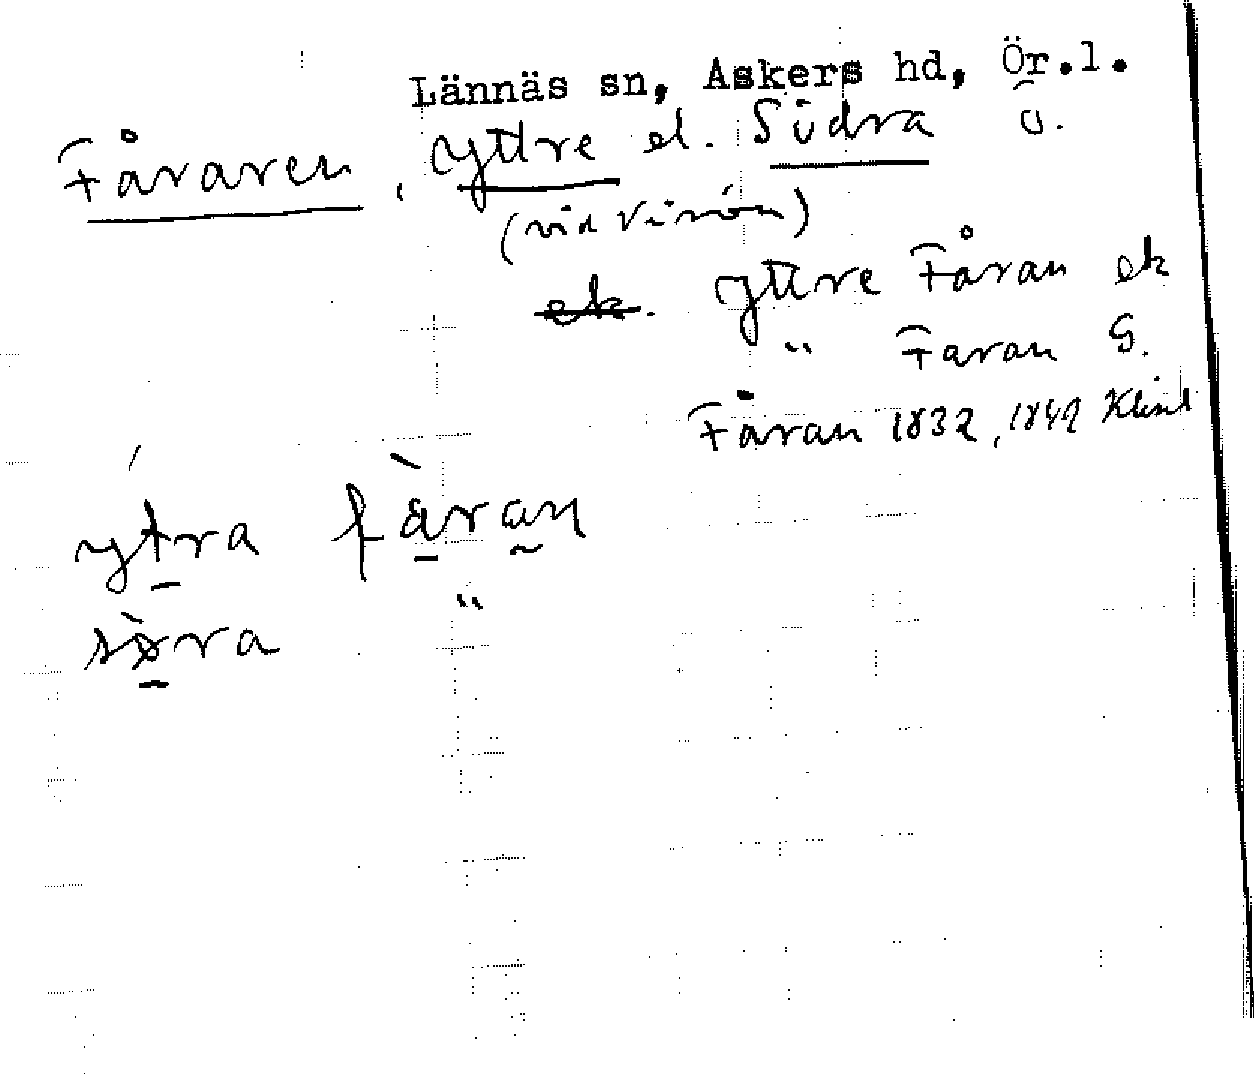 Lännäs sn, Askers hd, Ör.l.
Fåraren, yttre el. Södra ö.
(vid Vinön)
ek. yttre Fåran ek
" Faran G.
Fåran 1832, 1842 Klint
ytra fàran
sø̀ra "